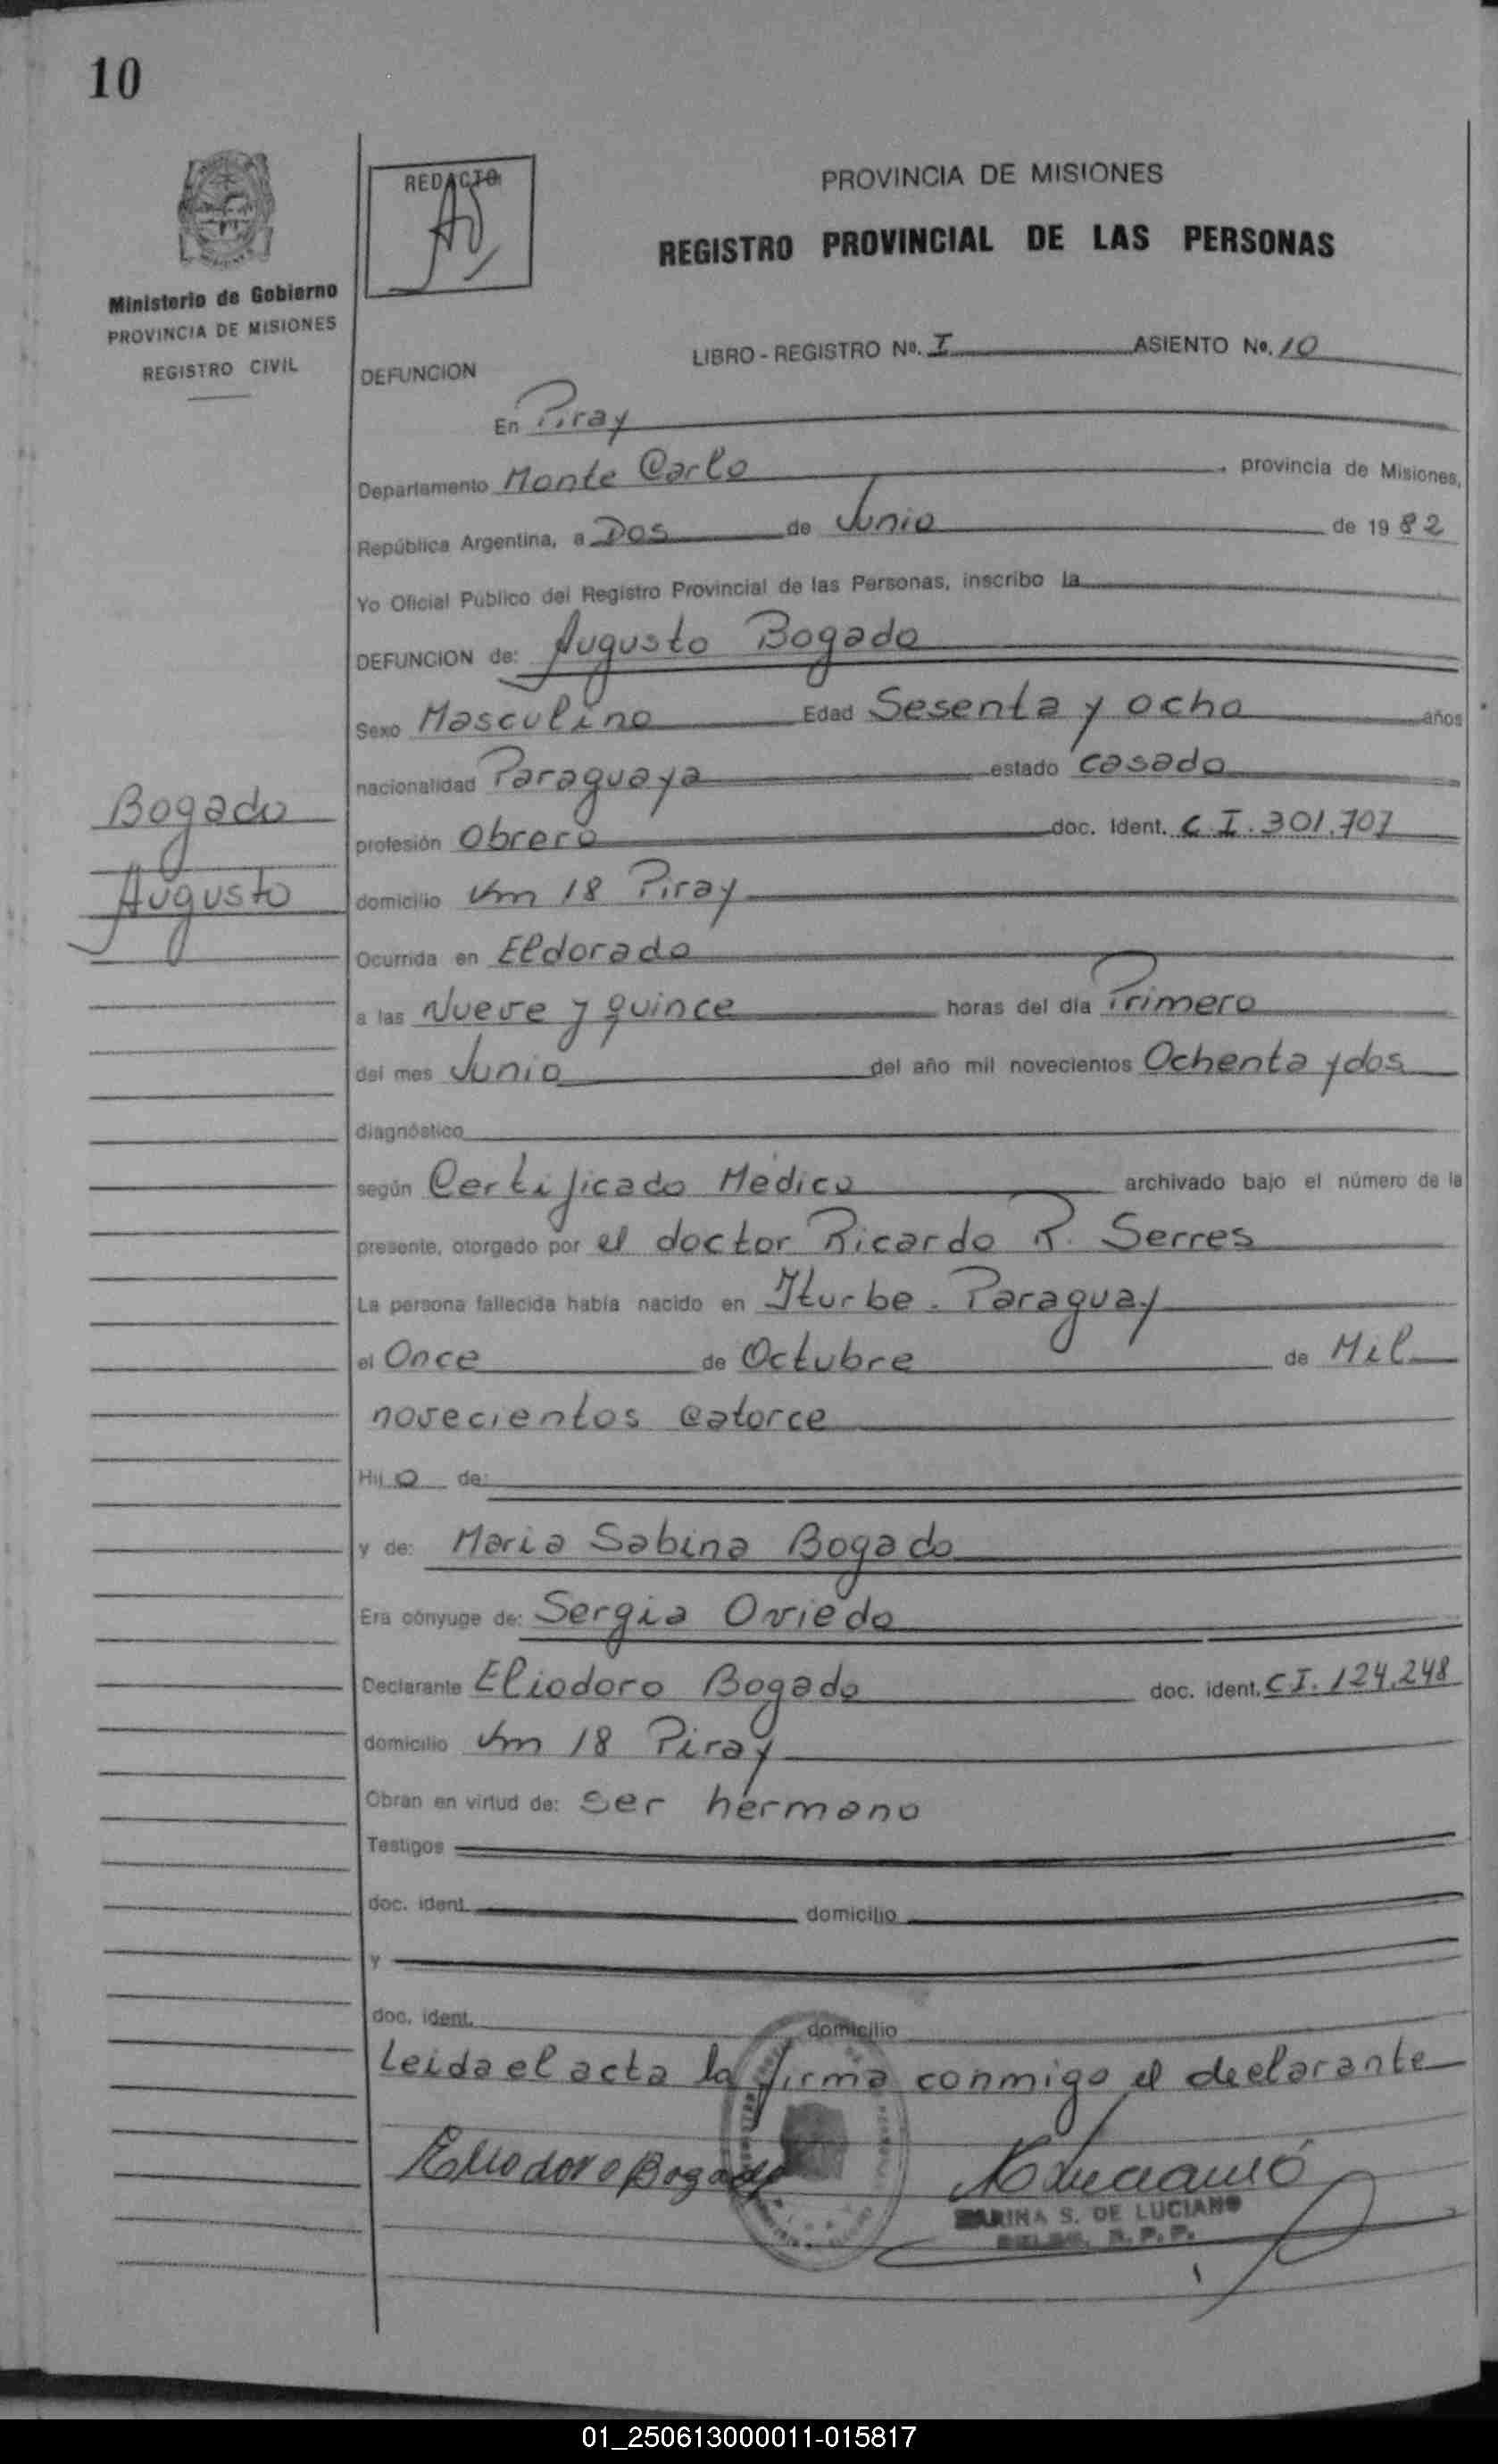 10
REDACTO
PROVINCIA DE MISIONES
REGISTRO PROVINCIAL DE LAS PERSONAS
Ministerio de Gobierno
PROVINCIA DE MISIONES
REGISTRO CIVIL
LIBRO - REGISTRO Nº. I ASIENTO Nº. 10
DEFUNCION
En Piray
Departamento Monte Carlo, provincia de Misiones,
República Argentina, a Dos de Junio de 1982
Yo Oficial Público del Registro Provincial de las Personas, inscribo la
DEFUNCION de: Augusto Bogado
Sexo Masculino Edad Sesenta y ocho años
nacionalidad Paraguaya estado casado
Bogado
profesión Obrero doc. Ident. C.I. 301.707
Augusto
domicilio Km 18 Piray
Ocurrida en Eldorado
a las Nueve y quince horas del día Primero
del mes Junio del año mil novecientos Ochenta y dos
diagnóstico
según Certificado Medico archivado bajo el número de la
presente, otorgado por el doctor Ricardo R. Serres
La persona fallecida había nacido en Iturbe - Paraguay
el Once de Octubre de Mil
novecientos catorce
Hijo de:
y de: Maria Sabina Bogado
Era cónyuge de: Sergia Oviedo
Declarante Eliodoro Bogado doc. ident. C.I. 124.248
domicilio Km 18 Piray
Obran en virtud de: ser hermano
Testigos
doc. ident. domicilio
y
doc. ident. domicilio
Leida el acta la firma conmigo el declarante
Eliodoro Bogado
MARINA S. DE LUCIANO
R. P. P.
01_250613000011-015817